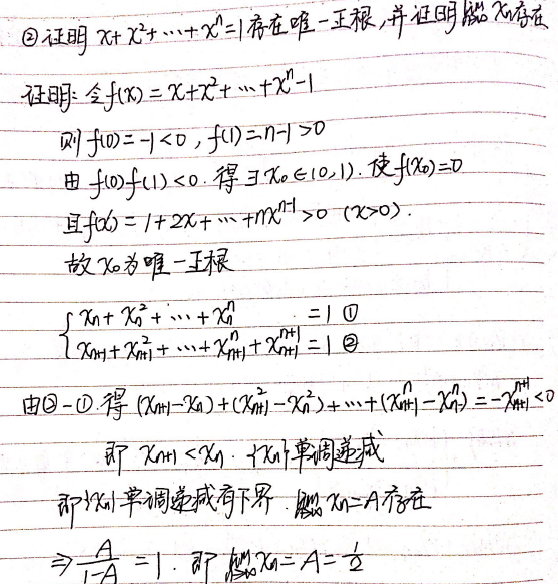 ②证明 x+x²+…+xⁿ=1存在唯一正根,并证明 lim xₙ存在
证明: 令f(x)=x+x²+…+xⁿ-1
则 f(0)=-1<0, f(1)=n-1>0
由 f(0)f(1)<0. 得∃x₀∈(0,1). 使f(x₀)=0
且f'(x)=1+2x+…+nxⁿ⁻¹>0 (x>0).
故 x₀为唯一正根
{ xₙ+xₙ²+…+xₙⁿ =1 ①
xₙ₊₁+xₙ₊₁²+…+xₙ₊₁ⁿ+xₙ₊₁ⁿ⁺¹=1 ②
由②-①.得 (xₙ₊₁-xₙ)+(xₙ₊₁²-xₙ²)+…+(xₙ₊₁ⁿ-xₙⁿ)=-xₙ₊₁ⁿ⁺¹<0
即 xₙ₊₁<xₙ. {xₙ}单调递减
即{xₙ}单调递减有下界. lim xₙ=A存在
⇒ A/(1-A) =1. 即 lim xₙ=A=1/2